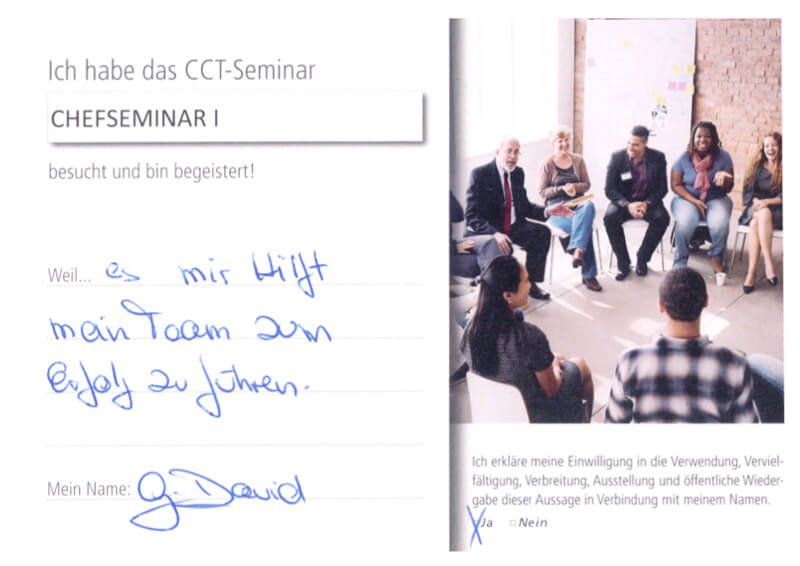 Ich habe das CCT-Seminar
CHEFSEMINAR I
besucht und bin begeistert!
Weil... es mir Hilft
mein Team zum
Erfolg zu führen.
Mein Name: G. David
Ich erkläre meine Einwilligung in die Verwendung, Verviel-
fältigung, Verbreitung, Ausstellung und öffentliche Wieder-
gabe dieser Aussage in Verbindung mit meinem Namen.
Ja Nein